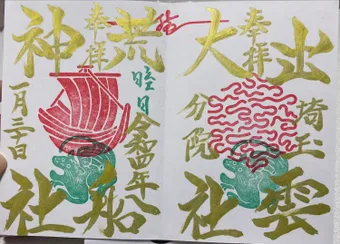 奉拝
出雲
大社
埼玉
分院
結
奉拝
荒船
神社
睦月
令和四年
一月三十日